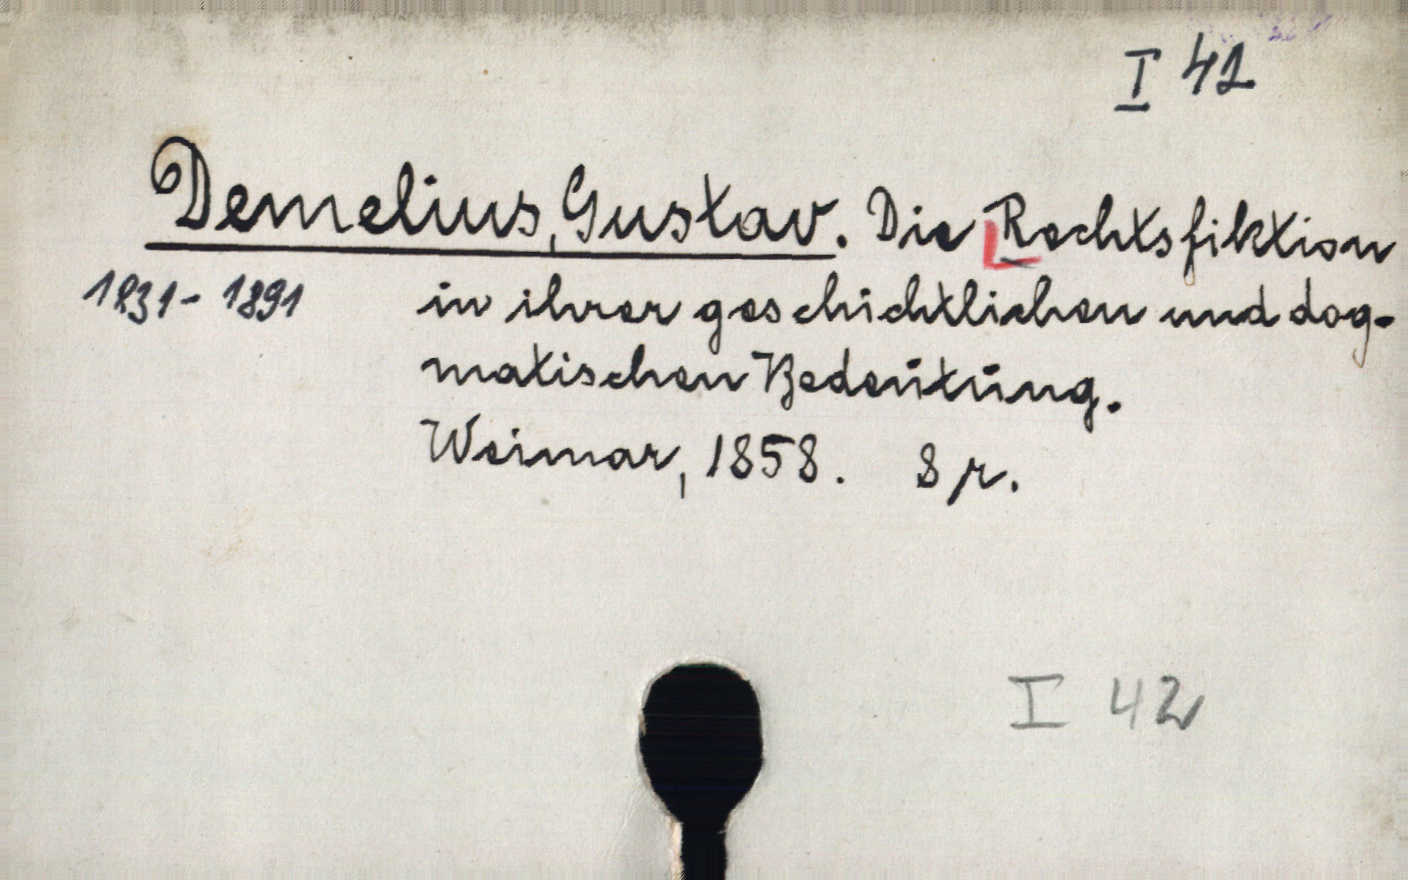 I 42
Demelius, Gustav. Die Rechtsfiktion
1831-1891 in ihrer geschichtlichen und dog-
matischen Bedeutung.
Weimar, 1858. 8 r.
I 42